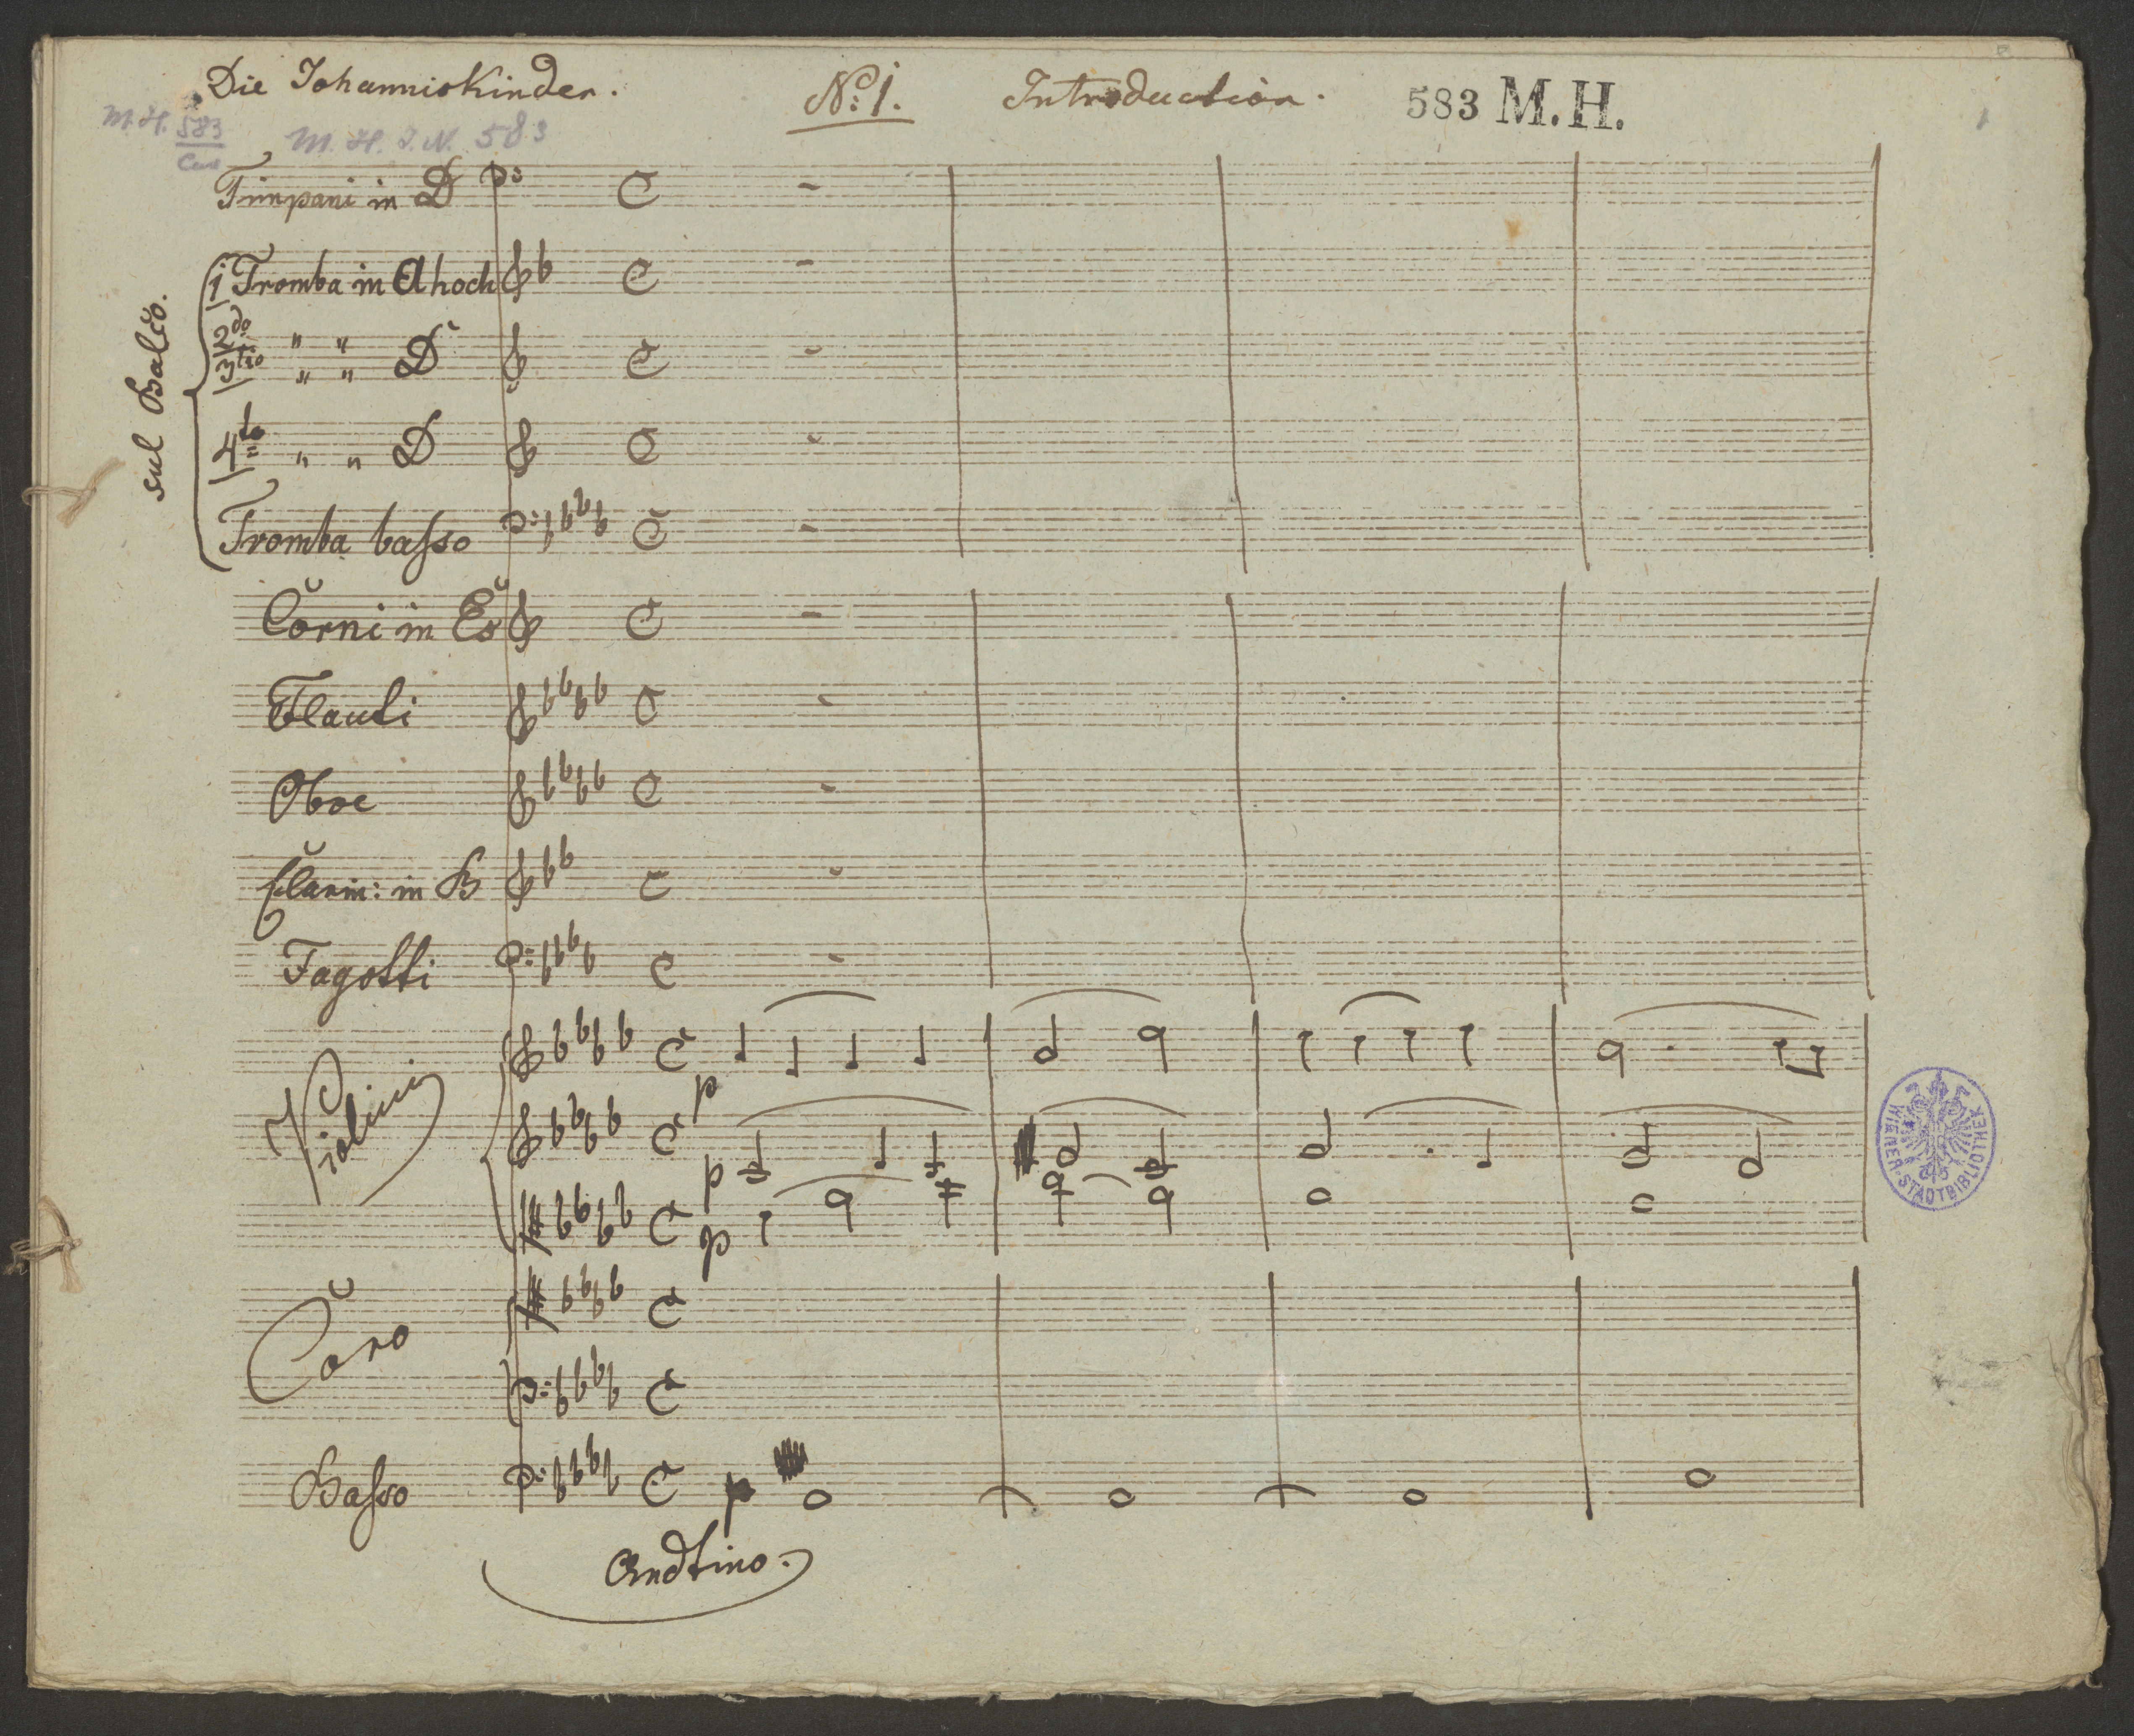 Die Johanniskinder. No: 1. Introduction. 583 M.H.
M. H. 583
M. H. I. N. 583
Timpani in D
sul Balco.
1 Tromba in A hoch
2do " " D
3tio " "
4to " " D
Tromba basso
Corni in Es
Flauti
Oboe
Clarin: in B
Fagotti
Violini
p
p
p
WIENER STADTBIBLIOTHEK
Coro
Basso p
Andtino.